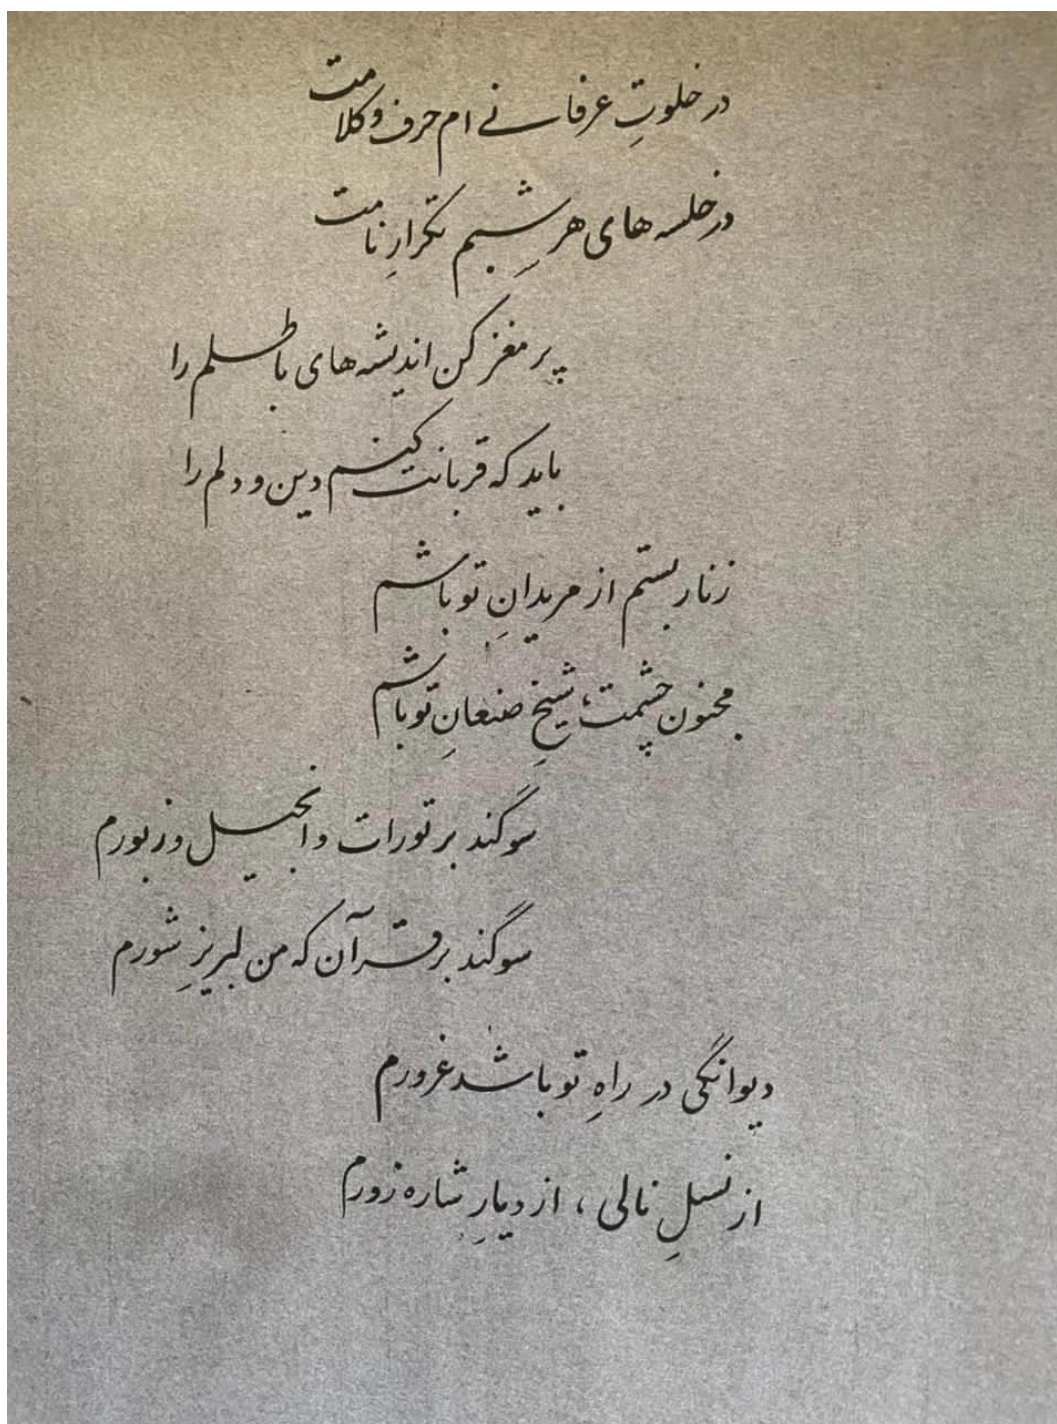 در خلوتِ عرفانی ام حرف و کلامت
در خلسه های هر شبم تکرارِ نامت
پر مغز کن اندیشه های باطلم را
باید که قربانت کنم دین و دلم را
زنار بستم از مریدانِ تو باشم
مجنون چشمت، شیخِ صنعانِ تو باشم
سوگند بر تورات و انجیل و زبورم
سوگند بر قرآن که من لبریزِ شورم
دیوانگی در راهِ تو باشد غرورم
از نسلِ نالی، از دیارِ شاره زورم